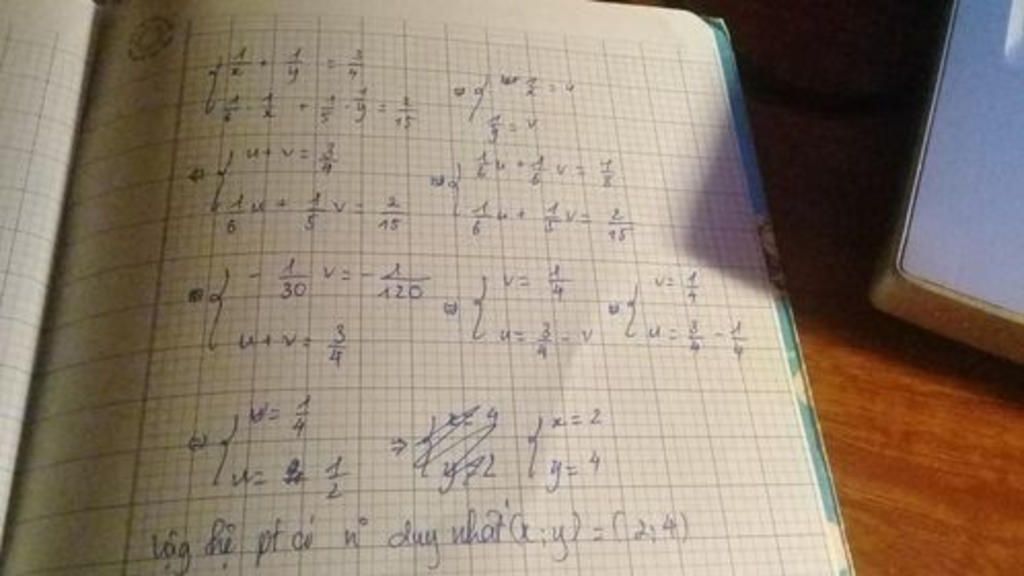 { 1/x + 1/y = 3/4
{ 1/6 · 1/x + 1/5 · 1/y = 2/15
1/x = u
1/y = v
⇔ { u + v = 3/4
{ 1/6 u + 1/5 v = 2/15
⇔ { 1/6 u + 1/6 v = 1/8
{ 1/6 u + 1/5 v = 2/15
⇔ { - 1/30 v = - 1/120
{ u + v = 3/4
⇔ { v = 1/4
{ u = 3/4 - v
⇔ { v = 1/4
{ u = 3/4 - 1/4
⇔ { v = 1/4
{ u = 1/2
⇒ { x = 2
{ y = 4
Vậy hệ pt có n° duy nhất (x ; y) = (2; 4)